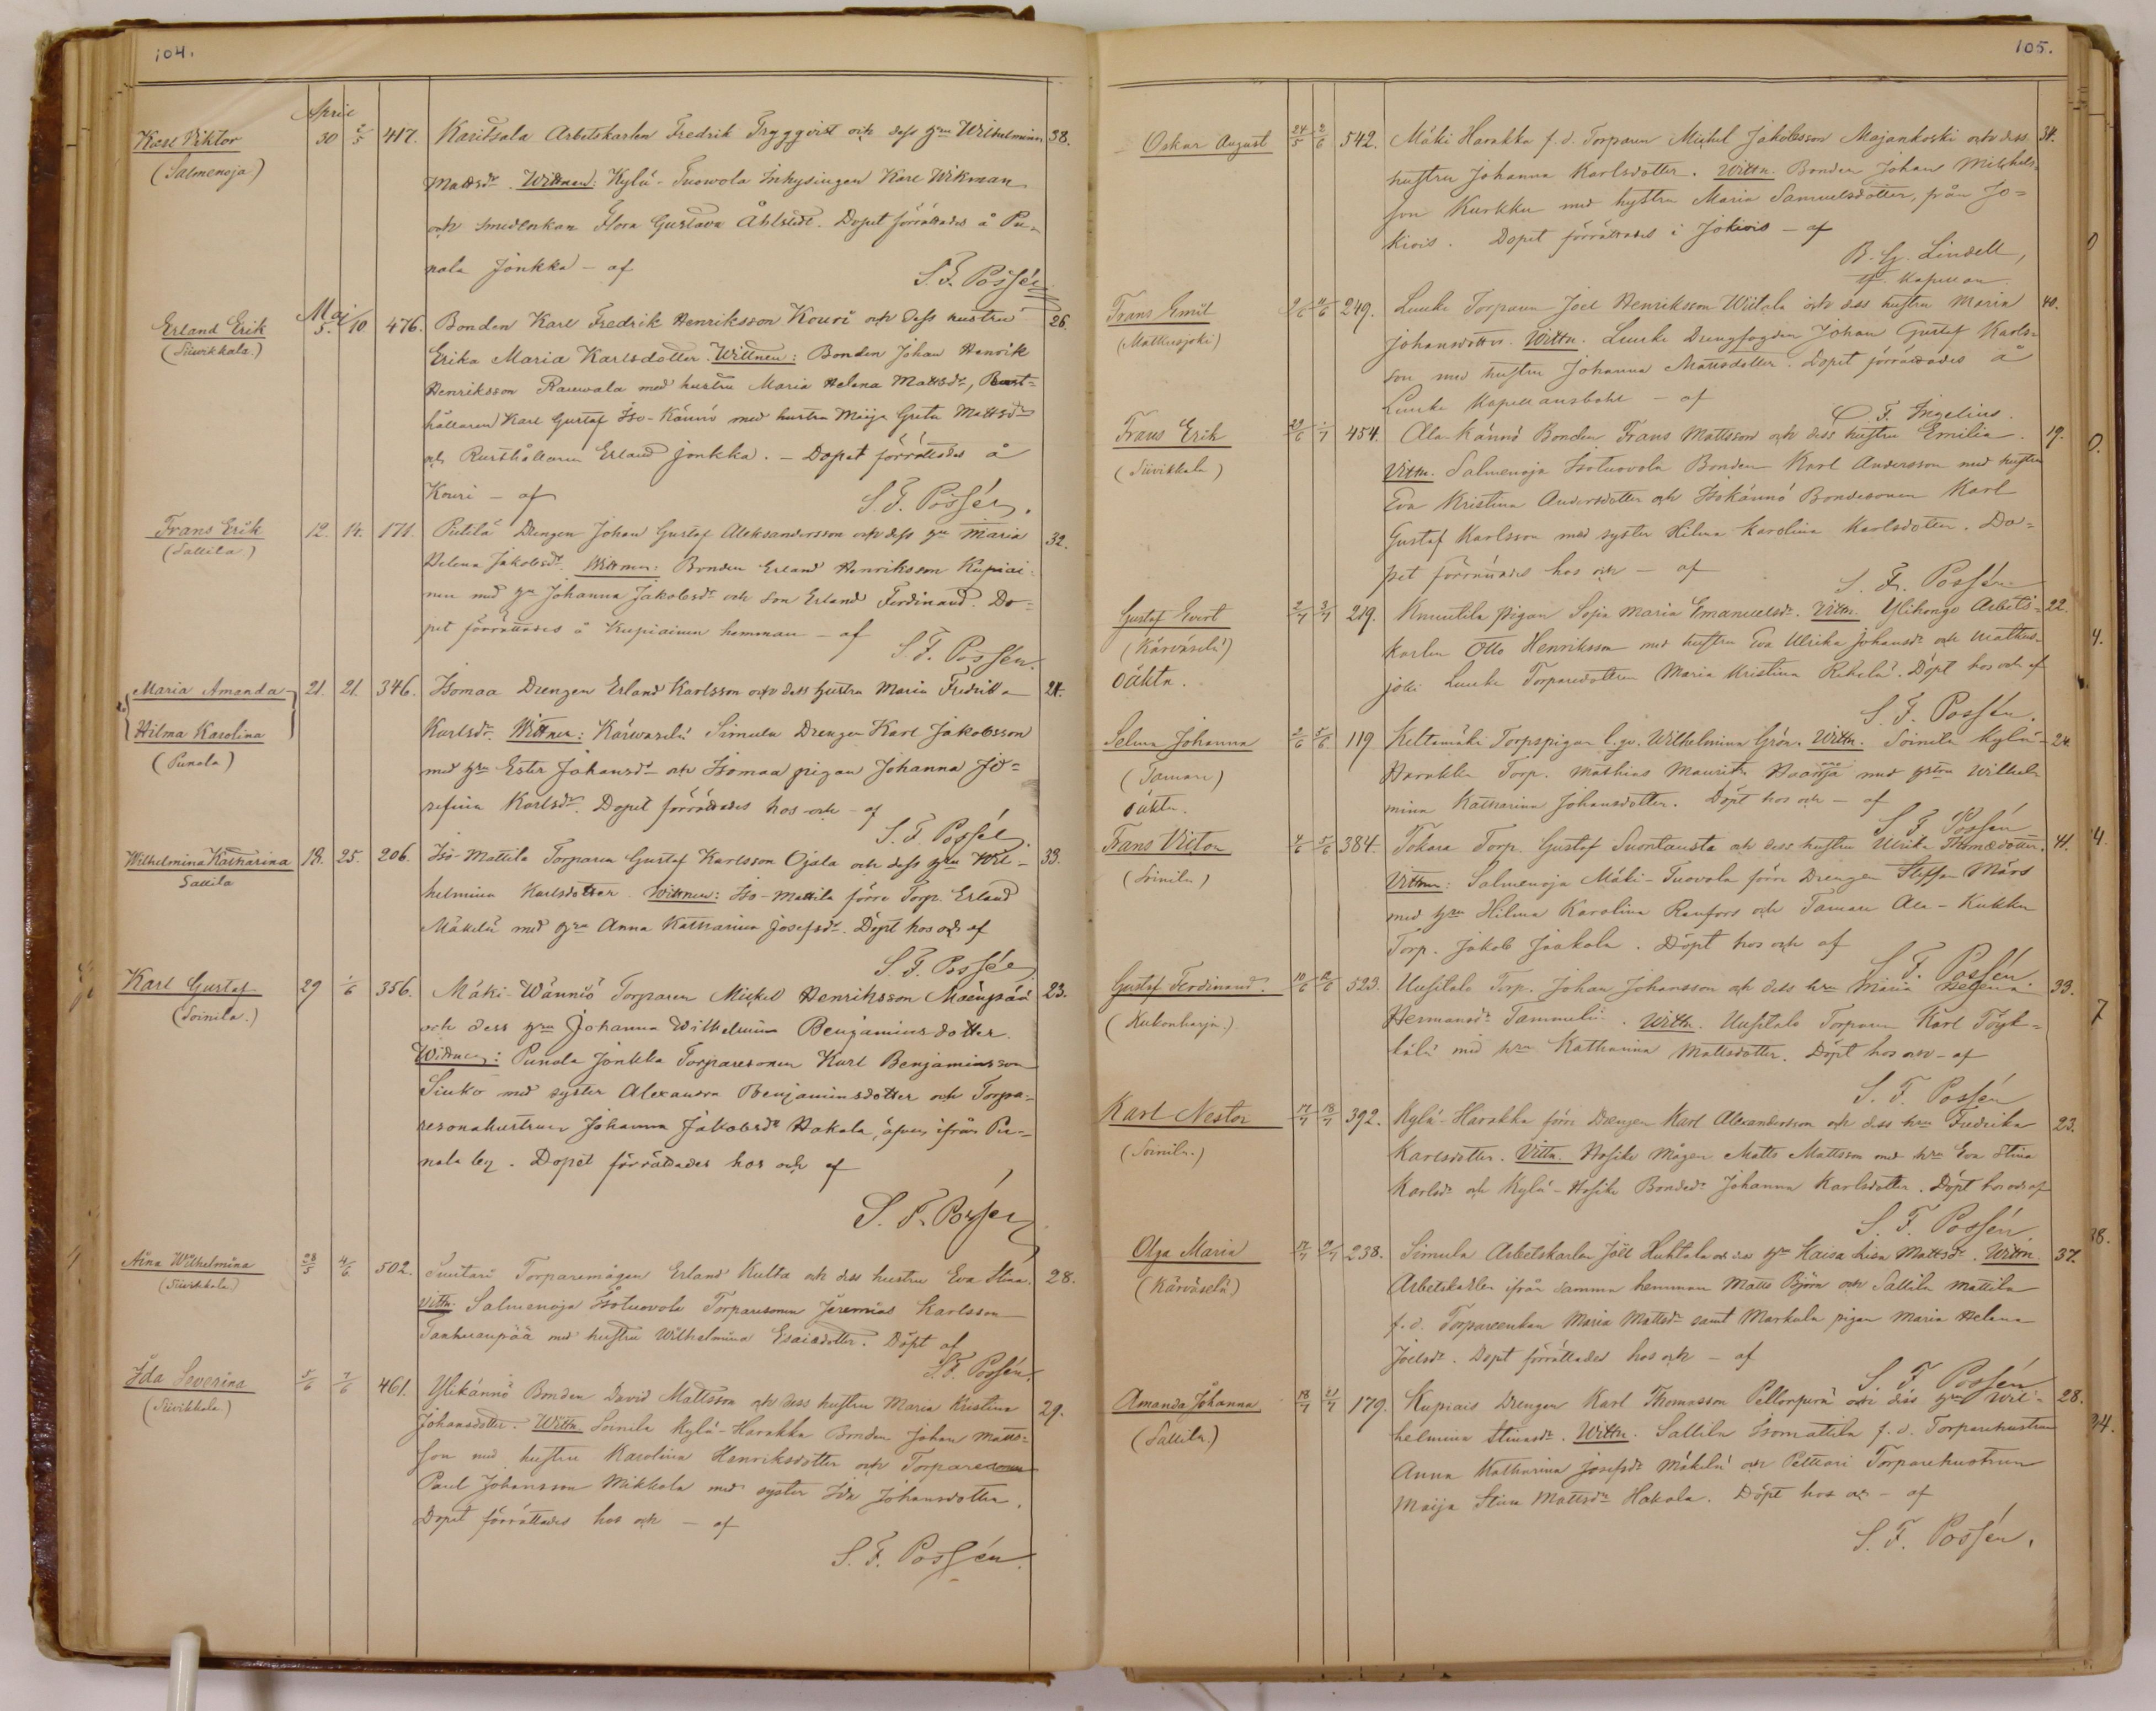 104.
April
Karl Viktor 30 2/5 417. Karitsala Arbetskarlen Fredrik Tryggvist och dess hru Wilhelmina 38.
(Salmenoja) Mattsdr. Wittnen: Kylä-Tuowola Inhysingen Karl Wikman
och smedenkan Flora Gustava Åhlstedt. Dopet förrättades å Pu-
nala Jonkka - af
S. F. Possén
Maj
Erland Erik 5. 10 476. Bonden Karl Fredrik Henriksson Kouri och dess hustru 26.
(Siivikkala.) Erika Maria Karlsdotter. Wittnen: Bonden Johan Henrik
Henriksson Rauwala med hustru Maria Helena Mattsdr, Rust-
hållaren Karl Gustaf Iso-Kännö med hustru Maija Greta Mattsdr
och Rusthållaren Erland Jonkka. - Dopet förrättades å
Kouri - af S. F. Possén.
Frans Erik 12. 14. 171. Pietilä Drengen Johan Gustaf Aleksandersson och dess hru Maria 32.
(Sallila) Helena Jakobsdr. Wittnen: Bonden Erland Henriksson Kupiai-
nen med hru Johanna Jakobsdr och son Erland Ferdinand. Do-
pet förrättades å Kupiainen hemman - af
S. F. Possén.
Maria Amanda 21. 21. 346. Isomaa Drengen Erland Karlsson och dess hustru Maria Fredrika 24.
Hilma Karolina Karlsdr. Wittnen: Kärwäselä Simula Drengen Karl Jakobsson
(Punola) med hru Ester Johansdr och Isomaa pigan Johanna Jo-
sefina Karlsdr. Dopet förrättades hos och - af
S. F. Possén
Wilhelmina Katharina 18. 25. 206. Iso-Mattila Torparen Gustaf Karlsson Ojala och dess hru Wil- 33.
Sallila helmina Karlsdotter. Wittnen: Iso-Mattila förre Torp. Erland
Mäkelä med hru Anna Katharina Josefsdr. Döpt hos och af
S. F. Possén
Karl Gustaf 29 1/6 356. Mäki-Wänniö Torparen Mickel Henriksson Maenpää 23.
(Soinila.) och dess hru Johanna Wilhelmina Benjaminsdotter.
Wittnen: Punola Jonkka Torparesonen Karl Benjaminsson
Siuko med syster Alexandra Benjaminsdotter och Torpa-
resonahustrun Johanna Jakobsdr Hakala, äfven ifrån Pu-
nala by. Dopet förrättades hos och af
S. F. Possén
Aina Wilhelmina 28/5 4/6 502. Suutari Torparemågen Erland Kulta och dess hustru Eva Stina. 28.
(Siivikkala) Vittn. Salmenoja Isotuovola Torparesonen Jeremias Karlsson
Taahuanpää med hustru Wilhelmina Esaiadotter. Döpt af
S. F. Possén.
Ida Severina 5/6 7/6 461. Ylikännö Bonden David Mattsson och dess hustru Maria Kristina 29.
(Siivikkala) Johansdotter. Wittn. Soinila Kylä-Harakka Bonden Johan Matts-
son med hustru Karolina Henriksdotter och Torparesonen
Paul Johansson Mikkola med syster Ida Johansdotter.
Dopet förrättades hos och - af
S. F. Possén.
105.
Oskar August 24/5 2/6 542. Mäki Harakka f. d. Torparen Michel Jakobsson Majankoski och dess 34.
hustru Johanna Karlsdotter. Wittn. Bonden Johan Michels-
son Kurkku med hustru Maria Samuelsdotter, från Jo-
kiois. Dopet förrättades i Jokiois - af
B. G. Lindell,
tf. Kapellan
Frans Emil 249. Luuke Torparen Joel Henriksson Wiitala och dess hustru Maria 40.
(Matkusjoki) Johansdotter. Wittn. Luuke Drengfogden Johan Gustaf Karls-
son med hustru Johanna Mattsdotter. Dopet förrättades å
Luuke Kapellansbohl - af
F. Ingelius.
Frans Erik 29/6 1/7 454. Ala-Kännö Bonden Frans Mattsson och dess hustru Emilia. 19.
(Siivikkala) Vittn. Salmenoja Isotuovola Bonden Karl Andersson med hustru
Eva Kristina Andersdotter och Isokännö Bondesonen Karl
Gustaf Karlsson med syster Hilma Karolina Karlsdotter. Do-
pet förrättades hos och - af
S. F. Possén
Gustaf Evert 2/7 3/7 219. Knuutila pigan Sofia Maria Emanuelsdr. Vittn. Ylihongo Arbets- 22.
(Kärväselä) karlen Otto Henriksson med hustru Eva Ulrika Johansdr och Matkus-
oäkta. joki Luuke Torparedottren Maria Kristina Rekelä. Döpt hos och af
S. F. Possén.
Selma Johanna 2/6 5/6 119 Keltamäki Torpspigan l. qv. Wilhelmina Grön. Wittn. Soinila Kylä- 24
(Tamare) Harakka Torp. Mathias Maurits Haarja med hstru Wilhel-
oäkta. mina Katharina Johansdotter. Döpt hos och - af
S. F. Possén
Frans Victor 4/6 5/6 384. Tohara Torp. Gustaf Suontausta och dess hustru Ulrika Thomasdotter. 41.
(Soinila) Vittnen: Salmenoja Mäki-Tuovola förre Drengen Steffan Mårs
med hru Hilma Karolina Ranfors och Tamare Ala-Kukku
Torp. Jakob Jaakola. Döpt hos och af
S. F. Possén
Gustaf Ferdinand. 10/6 12/6 523. Uusitalo Torp. Johan Johansson och dess hru Maria Helena 33.
(Kukonharja.) Hermansdr Tammela. Wittn. Uusitalo Torparen Karl Töyk-
kälä med hru Katharina Mattsdotter. Döpt hos och - af
S. F. Possén
Karl Nestor 17/7 18/7 392. Kylä-Harakka förre Drengen Karl Alexandersson och dess hru Fredrika 23.
(Soinila.) Karlsdotter. Vittn. Hosike Mågen Matts Mattsson med hru Eva Stina
Karlsdr och Kylä-Hosike Bondedr Johanna Karlsdotter. Döpt hos och af
S. F. Possén
Olga Maria 238. Simula Arbetskarlen Joel Huhtala och dess hru Kaisa Lisa Mattsdr. Wittn. 37.
(Kärväselä) Arbetskarlen ifrån samma hemman Matts Björn och Sallila Mattila
f. d. Torpareenkan Maria Mattsdr samt Markula pigan Maria Helena
Joelsdr. Dopet förrättades hos och - af
S. F. Possén
Amanda Johanna 18/7 21/7 179. Kupiais Drengen Karl Thomasson Pellonperä och dess hru Wil- 28.
(Sallila.) helmina Stinasdr. Wittn. Sallila Isomattila f. d. Torparehustrun
Anna Katharina Josefsdr Mäkelä och Pelttari Torparehustrun
Maija Stina Mattsdr Hakala. Döpt hos och - af
S. F. Possén.